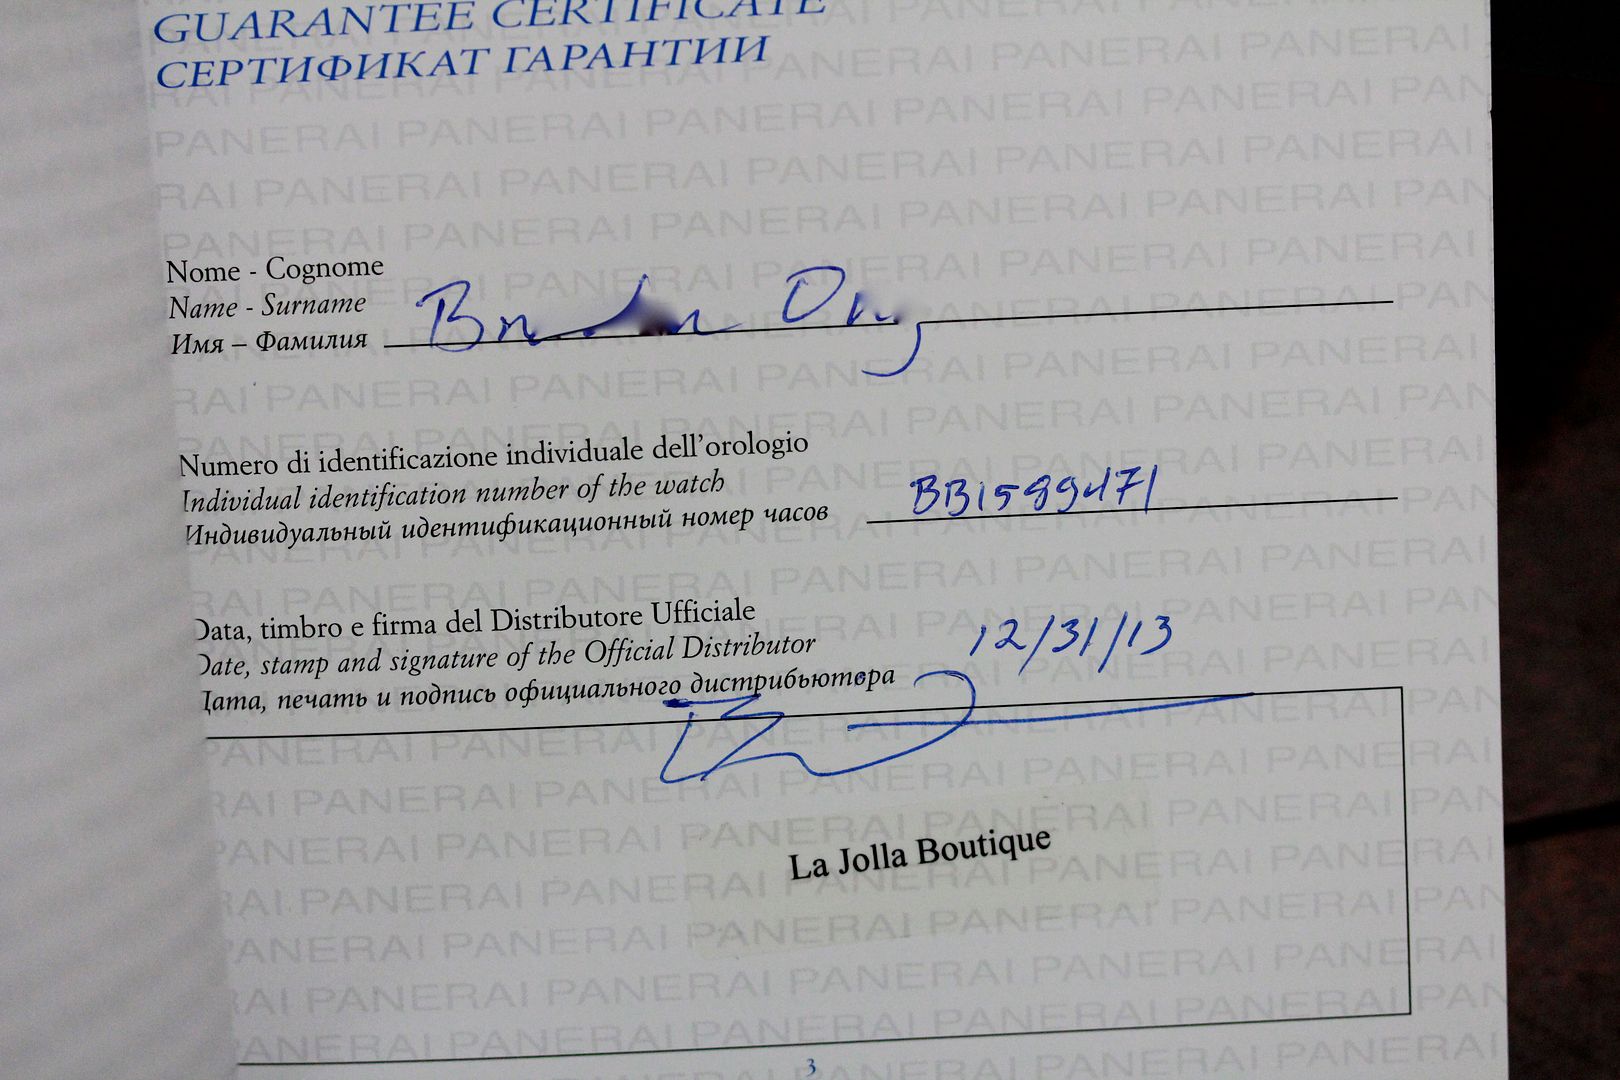 GUARANTEE CERTIFICATE
СЕРТИФИКАТ ГАРАНТИИ
Nome - Cognome
Name - Surname
Имя – Фамилия
Numero di identificazione individuale dell’orologio
Individual identification number of the watch
Индивидуальный идентификационный номер часов
BB1589471
Data, timbro e firma del Distributore Ufficiale
Date, stamp and signature of the Official Distributor
Дата, печать и подпись официального дистрибьютера
12/31/13
La Jolla Boutique
3